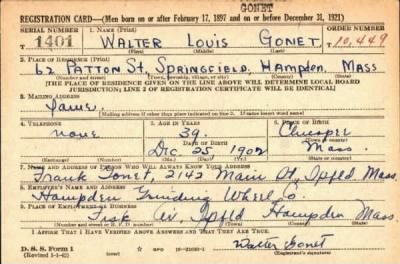 GONET
REGISTRATION CARD—(Men born on or after February 17, 1897 and on or before December 31, 1921)
SERIAL NUMBER 1. NAME (Print) ORDER NUMBER
1401 WALTER LOUIS GONET T10,449
(First) (Middle) (Last)
2. PLACE OF RESIDENCE (Print)
62 PATTON St, SPRINGFIELD, HAMPDEN, MASS
(Number and street) (Town, township, village, or city) (County) (State)
[THE PLACE OF RESIDENCE GIVEN ON THE LINE ABOVE WILL DETERMINE LOCAL BOARD
JURISDICTION; LINE 2 OF REGISTRATION CERTIFICATE WILL BE IDENTICAL]
3. MAILING ADDRESS
Same
[Mailing address if other than place indicated on line 2. If same insert word same]
4. TELEPHONE 5. AGE IN YEARS 6. PLACE OF BIRTH
none 39 Chicopee
DATE OF BIRTH (Town or county)
Dec 25, 1902 Mass.
(Exchange) (Number) (Mo.) (Day) (Yr.) (State or country)
7. NAME AND ADDRESS OF PERSON WHO WILL ALWAYS KNOW YOUR ADDRESS
Frank Gonet, 2142 Main St, Spfld. Mass.
8. EMPLOYER'S NAME AND ADDRESS
Hampden Grinding Wheel Co.
9. PLACE OF EMPLOYMENT OR BUSINESS
Fisk Av, Spfld Hampden Mass.
(Number and street or R. F. D. number) (Town) (County) (State)
I AFFIRM THAT I HAVE VERIFIED ABOVE ANSWERS AND THAT THEY ARE TRUE.
D. S. S. Form 1
(Revised 1-1-42) (over)
Walter Gonet
(Registrant's signature)